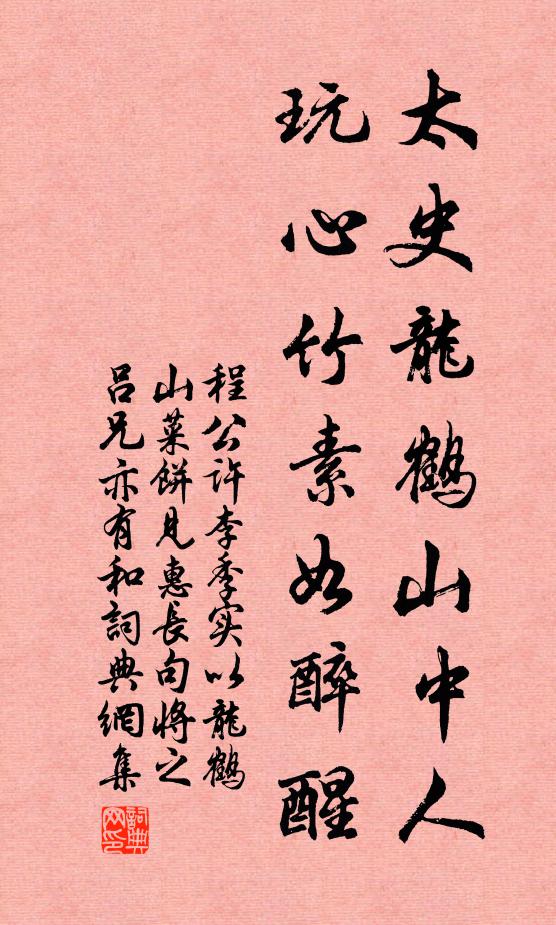 太史龍鶴山中人
玩心竹素如醉醒
程公許李季实以龍鶴
山菜餅見惠長句將之
吕兄亦有和詞典網集
詞典网印